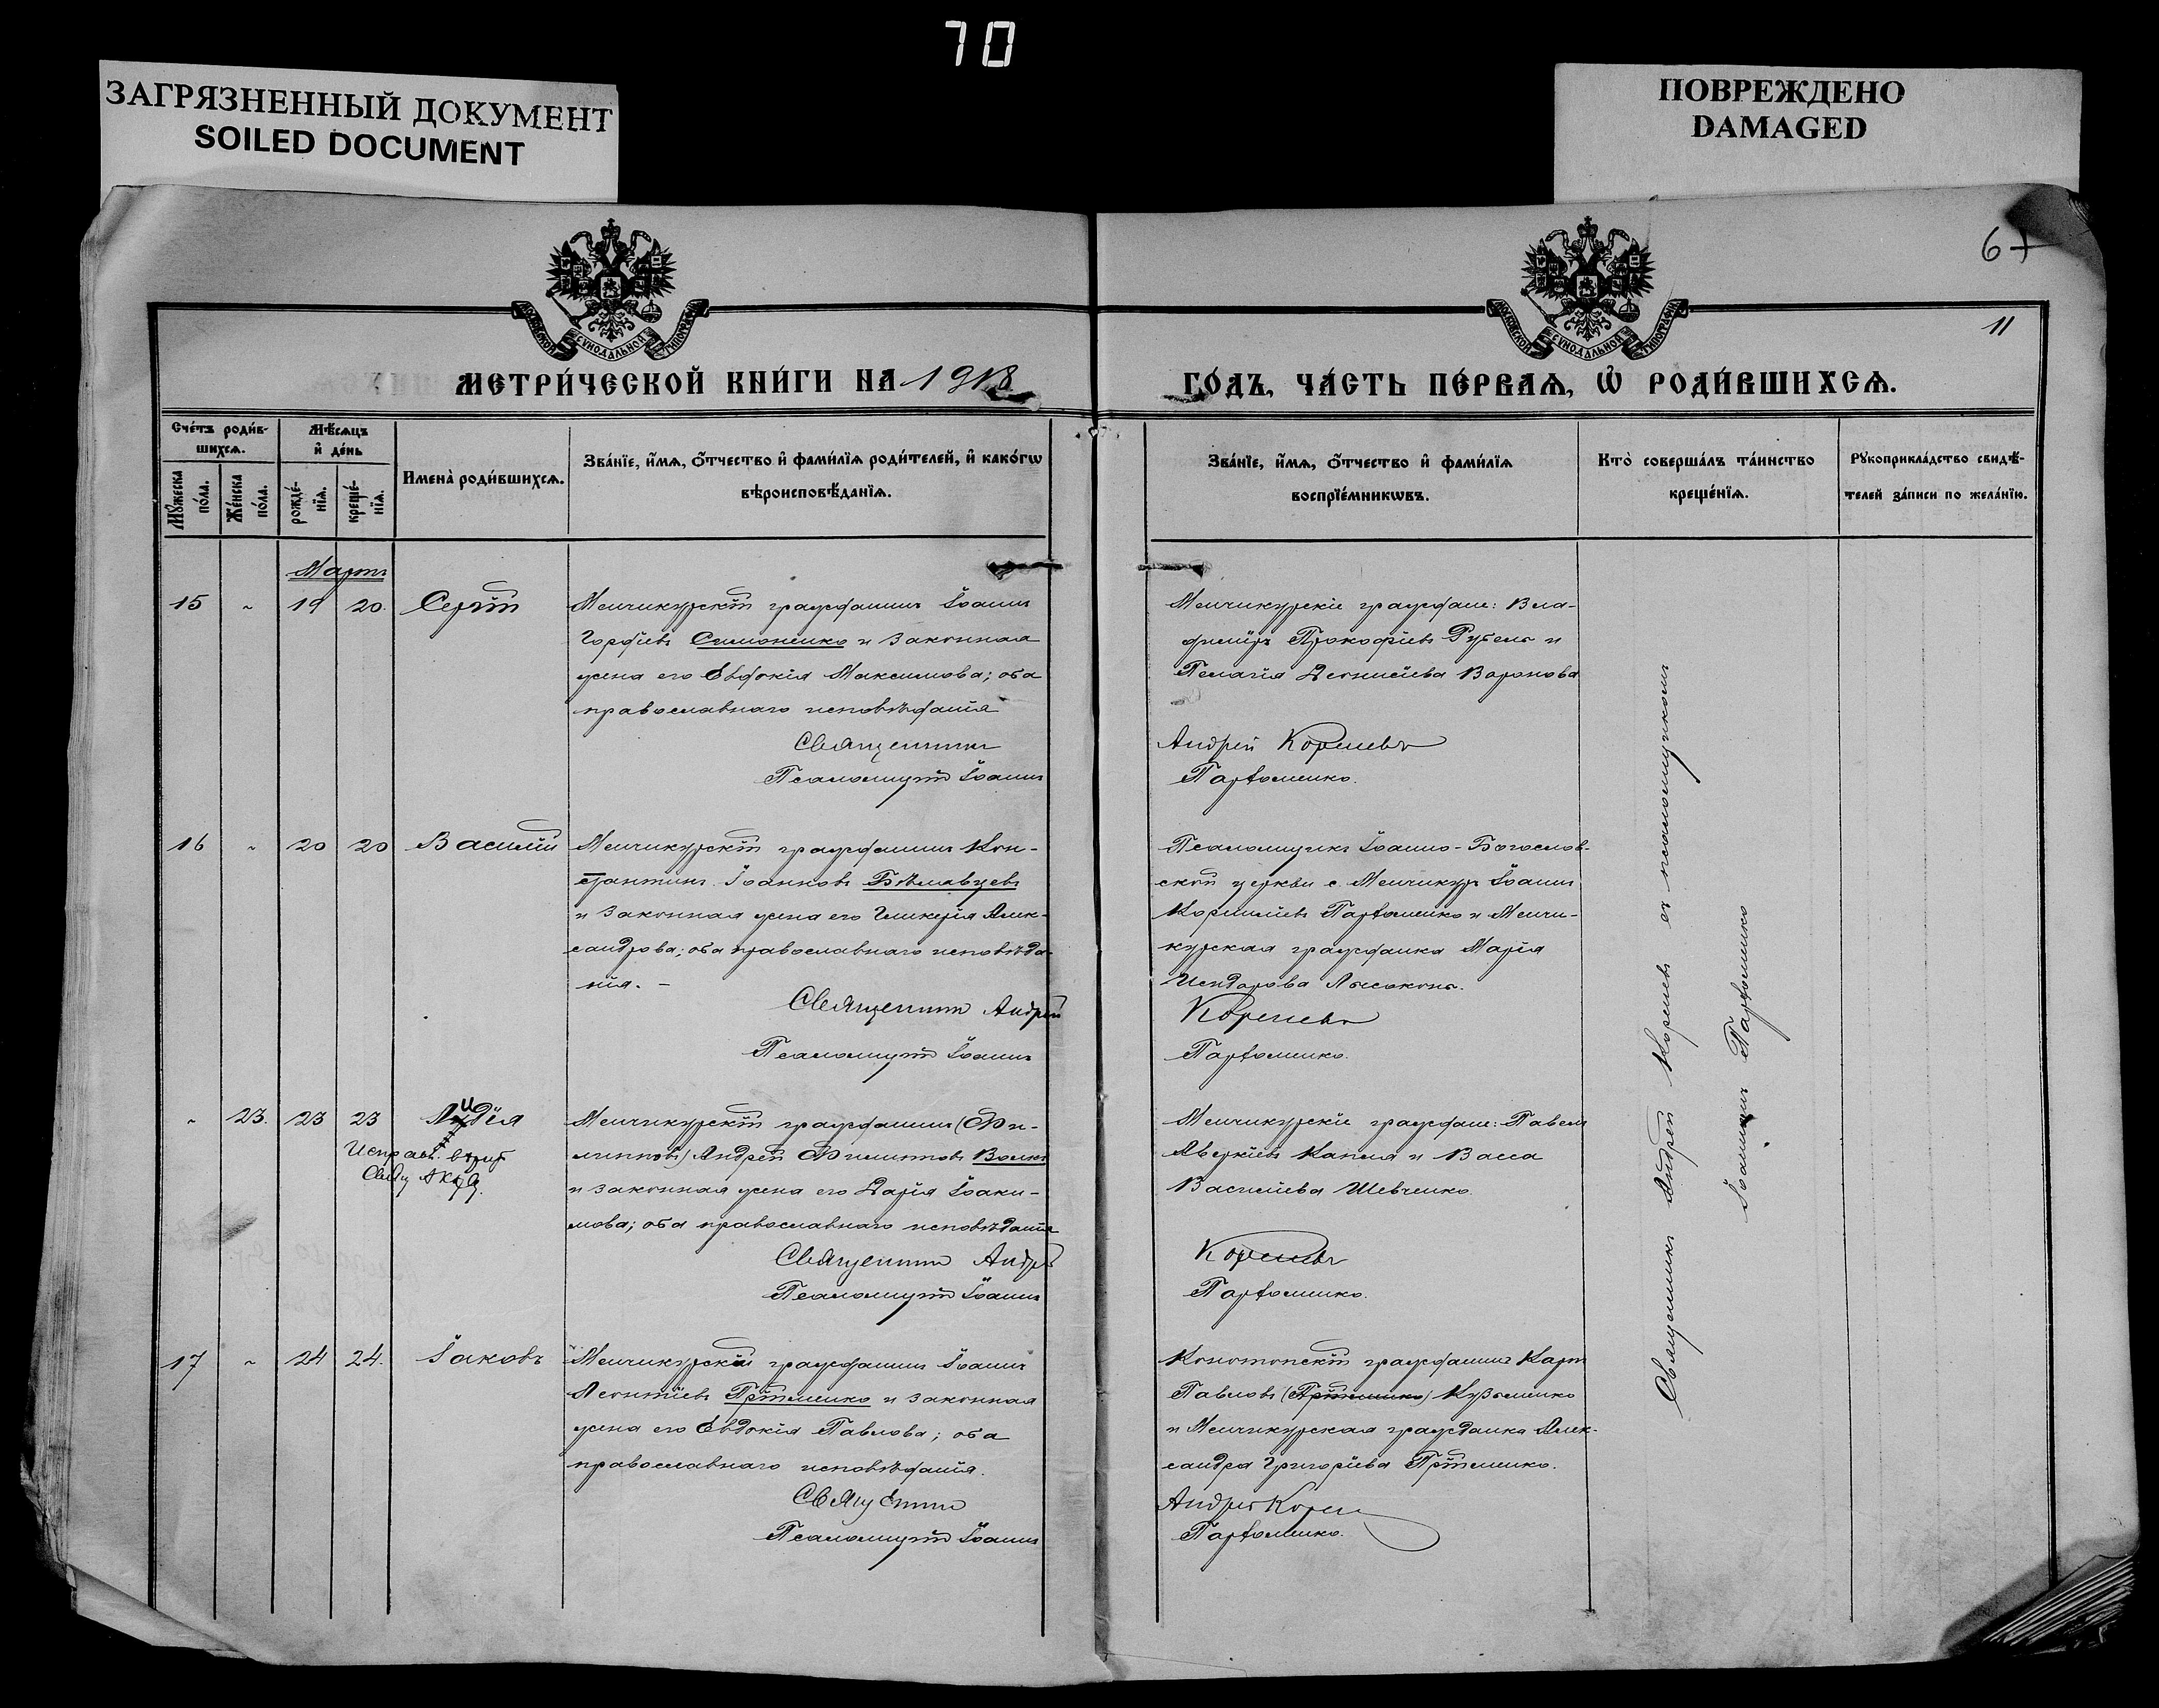 70
ЗАГРЯЗНЕННЫЙ ДОКУМЕНТ
SOILED DOCUMENT
ПОВРЕЖДЕНО
DAMAGED
67
11
МОСКОВСКОЙ СѴНОДАЛЬНОЙ ТИПОГРАФІИ
МОСКОВСКОЙ СѴНОДАЛЬНОЙ ТИПОГРАФІИ
МЕТРИ́ЧЕСКОЙ КНИ́ГИ НА 1918
ГО́ДЪ, ЧА́СТЬ ПЕ́РВАѦ, Ѡ҆ РОДИ́ВШИХСѦ.
Сче́тъ роди́в-
шихсѧ.
Мꙋ́жеска
по́ла.
Же́нска
по́ла.
Мѣ́сѧцъ
и҆ де́нь
рожде́-
нїѧ.
креще́-
нїѧ.
Имена̀ роди́вшихсѧ.
Зва́нїе, и҆́мѧ, ѻ҆́тчество и҆ фами́лїѧ роди́телей, и҆ како́гѡ
вѣроисповѣ́данїѧ.
Зва́нїе, и҆́мѧ, ѻ҆́тчество и҆ фами́лїѧ
воспрїе́мникѡвъ.
Кто̀ соверша́лъ та́инство
креще́нїѧ.
Рꙋкоприкла́дство свидѣ́-
телей за́писи по жела́нїю.
Мартъ
15 ~ 19 20. Сергій
Менчикурскій гражданинъ Іоаннъ
Гордіевъ Симоненко и законная
жена его Евдокія Максимова; оба
православнаго исповѣданія
Священникъ
Псаломщикъ Іоаннъ
Менчикурскіе граждане: Вла-
диміръ Прокофіевъ Рубель и
Пелагія Деонисіева Воронова
Андрей Кореневъ
Парѳоменко.
16 ~ 20 20 Василій
Менчикурскій гражданинъ Кон-
стантинъ Іоанновъ Бѣлявцевъ
и законная жена его Гликерія Алек-
сандрова; оба православнаго исповѣда-
нія. –
Священникъ Андрей
Псаломщикъ Іоаннъ
Псаломщикъ Іоанно-Богослов-
ской церкви с. Менчикуръ Іоаннъ
Корниліевъ Парѳоменко и Менчи-
курская гражданка Марія
Исидорова Лысоконь.
Кореневъ
Парѳоменко.
~ 23. 23 23 Лидія
Исправ. вѣрно
Менчикурскій гражданинъ (Фи-
липповъ) Андрей Филипповъ Волкъ
и законная жена его Дарія Іоаки-
мова; оба православнаго исповѣданія
Священникъ Андрей
Псаломщикъ Іоаннъ
Менчикурскіе граждане: Павелъ
Аверкіевъ Капля и Васса
Василіева Шевченко.
Кореневъ
Парѳоменко.
17 ~ 24 24. Іаковъ
Менчикурскій гражданинъ Іоаннъ
Леонтіевъ Прійменко и законная
жена его Евдокія Павлова; оба
православнаго исповѣданія.
Священникъ
Псаломщикъ Іоаннъ
Конотопскій гражданинъ Карпъ
Павловъ (Прійменко) Кузьменко
и Менчикурская гражданка Алек-
сандра Григоріева Прійменко.
Андрей Корен
Парѳоменко.
Священникъ Андрей Кореневъ съ псаломщикомъ
Іоанномъ Парѳоменко